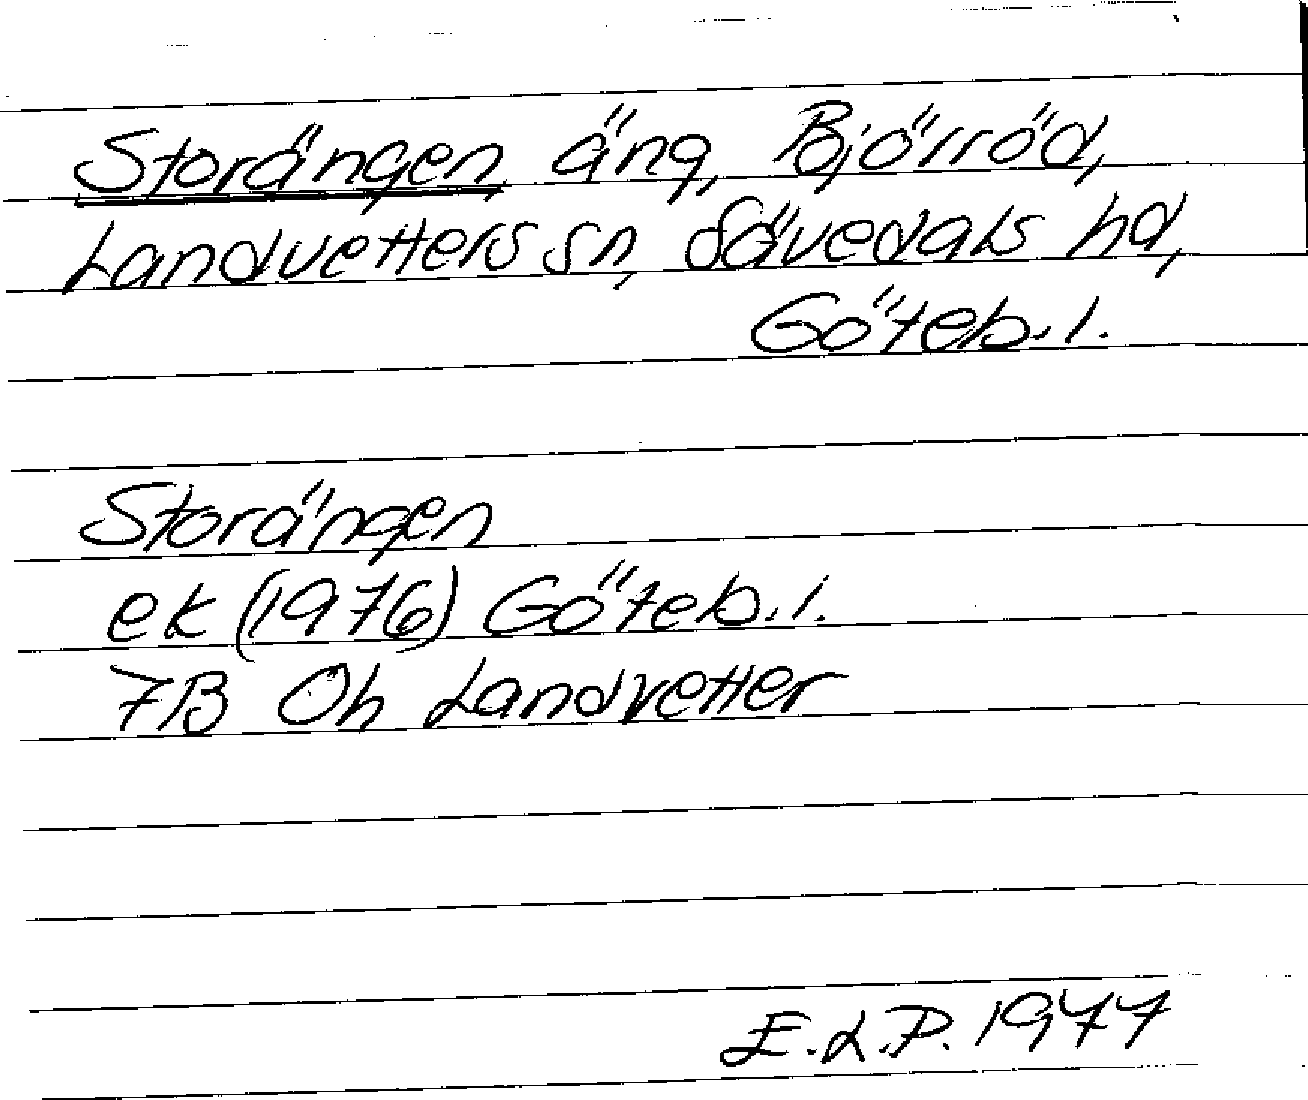 Storängen, äng, Björröd,
Landvetters sn, Sävedals hd,
Göteb. l.
Storängen
ek (1976) Göteb. l.
7B 0h Landvetter
E.L.P. 1977